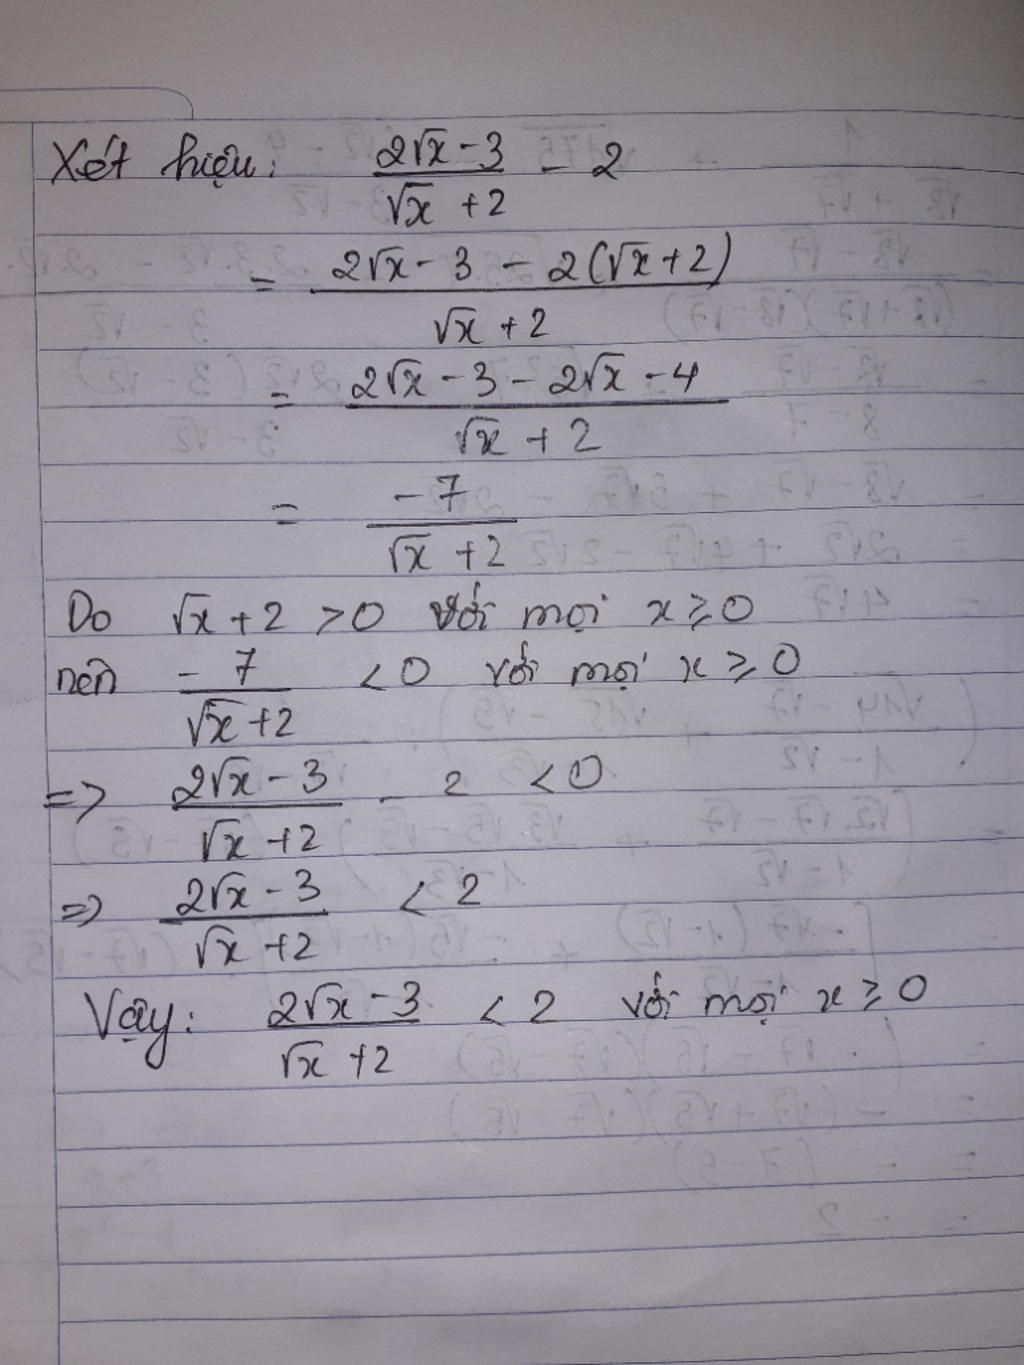 Xét hiệu: (2√x - 3)/(√x + 2) - 2
= (2√x - 3 - 2(√x + 2))/(√x + 2)
= (2√x - 3 - 2√x - 4)/(√x + 2)
= (-7)/(√x + 2)
Do √x + 2 > 0 với mọi x ≥ 0
nên (-7)/(√x + 2) < 0 với mọi x ≥ 0
=> (2√x - 3)/(√x + 2) - 2 < 0
=> (2√x - 3)/(√x + 2) < 2
Vậy: (2√x - 3)/(√x + 2) < 2 với mọi x ≥ 0